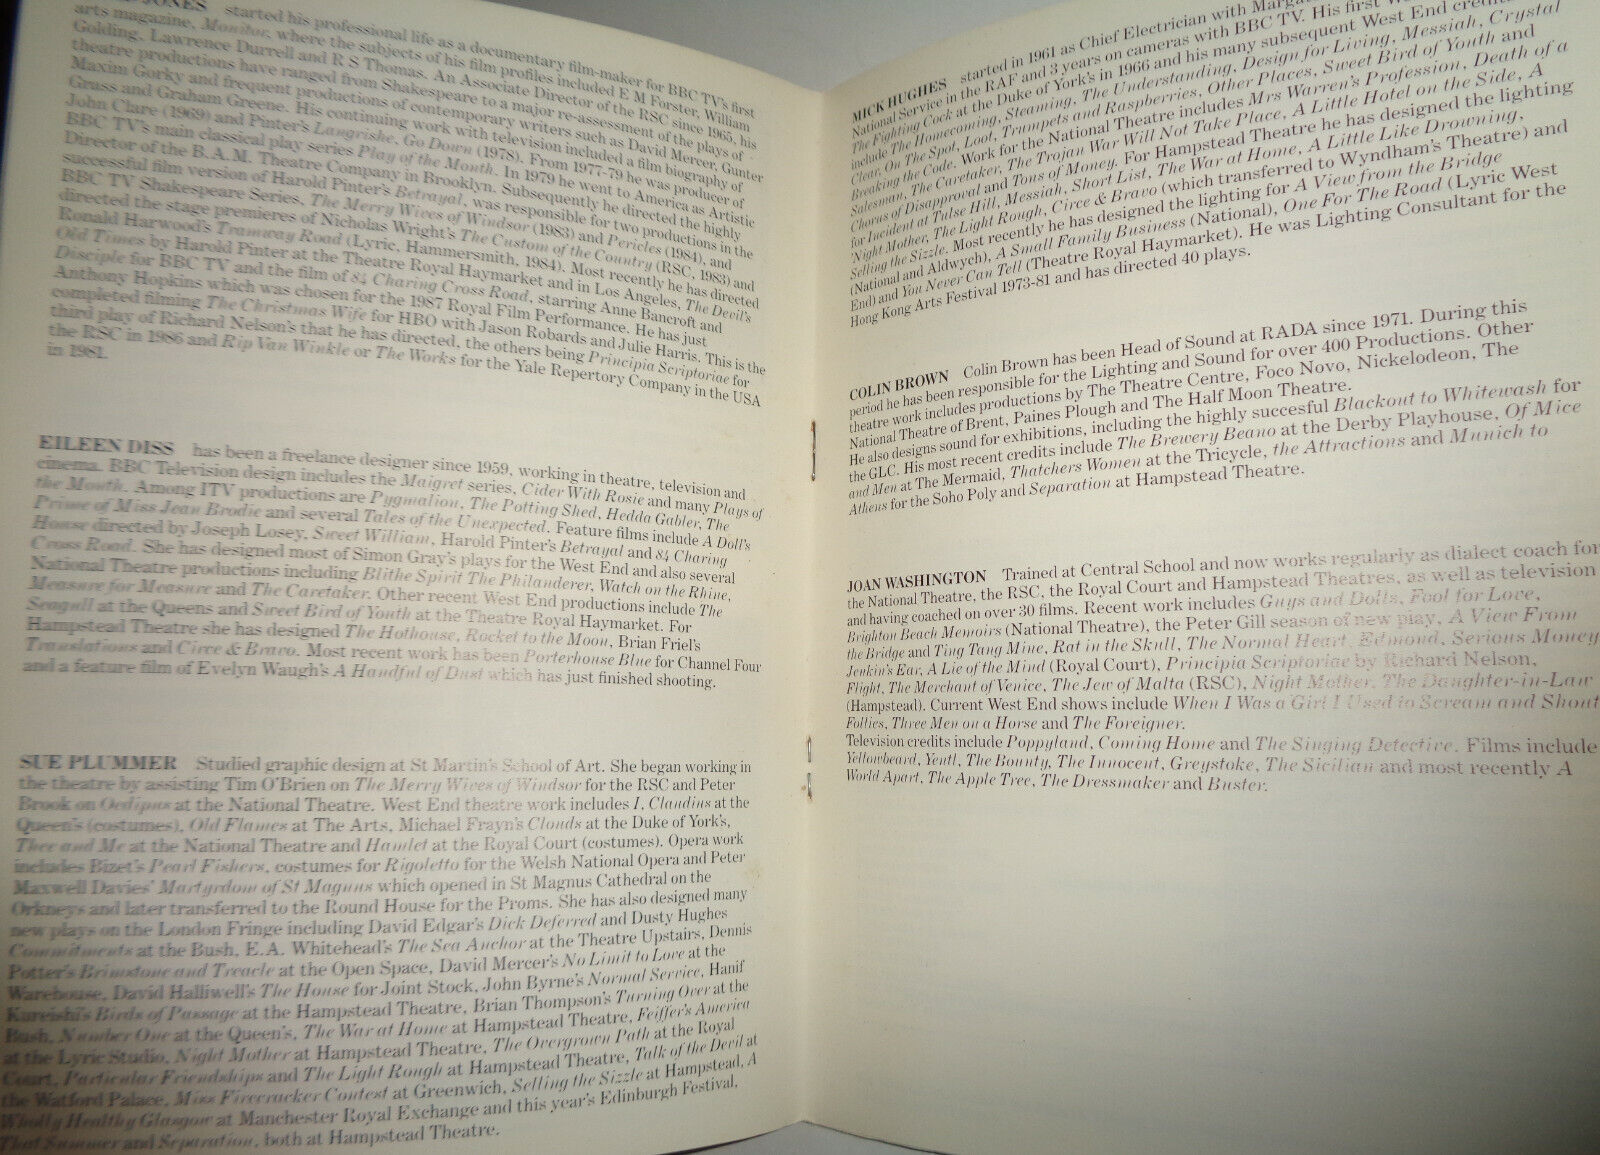 JONES started his professional life as a documentary film-maker for BBC TV's first
arts magazine, Monitor, where the subjects of his film profiles included E M Forster, William
Golding, Lawrence Durrell and R S Thomas. An Associate Director of the RSC since 1965, his
theatre productions have ranged from Shakespeare to a major re-assessment of the plays of
Maxim Gorky and frequent productions of contemporary writers such as David Mercer, Gunter
Grass and Graham Greene. His continuing work with television included a film biography of
John Clare (1969) and Pinter's Langrishe, Go Down (1978). From 1977-79 he was producer of
BBC TV's main classical play series Play of the Month. In 1979 he went to America as Artistic
Director of the B.A.M. Theatre Company in Brooklyn. Subsequently he directed the highly
successful film version of Harold Pinter's Betrayal, was responsible for two productions in the
BBC TV Shakespeare Series, The Merry Wives of Windsor (1983) and Pericles (1984), and
directed the stage premieres of Nicholas Wright's The Custom of the Country (RSC, 1983) and
Ronald Harwood's Tramway Road (Lyric, Hammersmith, 1984). Most recently he has directed
Old Times by Harold Pinter at the Theatre Royal Haymarket and in Los Angeles, The Devil's
Disciple for BBC TV and the film of 84 Charing Cross Road, starring Anne Bancroft and
Anthony Hopkins which was chosen for the 1987 Royal Film Performance. He has just
completed filming The Christmas Wife for HBO with Jason Robards and Julie Harris. This is the
third play of Richard Nelson's that he has directed, the others being Principia Scriptoriae for
the RSC in 1986 and Rip Van Winkle or The Works for the Yale Repertory Company in the USA
in 1981.
EILEEN DISS has been a freelance designer since 1959, working in theatre, television and
cinema. BBC Television design includes the Maigret series, Cider With Rosie and many Plays of
the Month. Among ITV productions are Pygmalion, The Potting Shed, Hedda Gabler, The
Prime of Miss Jean Brodie and several Tales of the Unexpected. Feature films include A Doll's
House directed by Joseph Losey, Sweet William, Harold Pinter's Betrayal and 84 Charing
Cross Road. She has designed most of Simon Gray's plays for the West End and also several
National Theatre productions including Blithe Spirit The Philanderer, Watch on the Rhine,
Measure for Measure and The Caretaker. Other recent West End productions include The
Seagull at the Queens and Sweet Bird of Youth at the Theatre Royal Haymarket. For
Hampstead Theatre she has designed The Hothouse, Rocket to the Moon, Brian Friel's
Translations and Circe & Bravo. Most recent work has been Porterhouse Blue for Channel Four
and a feature film of Evelyn Waugh's A Handful of Dust which has just finished shooting.
SUE PLUMMER Studied graphic design at St Martin's School of Art. She began working in
the theatre by assisting Tim O'Brien on The Merry Wives of Windsor for the RSC and Peter
Brook on Oedipus at the National Theatre. West End theatre work includes I, Claudius at the
Queen's (costumes), Old Flames at The Arts, Michael Frayn's Clouds at the Duke of York's,
Thee and Me at the National Theatre and Hamlet at the Royal Court (costumes). Opera work
includes Bizet's Pearl Fishers, costumes for Rigoletto for the Welsh National Opera and Peter
Maxwell Davies' Martyrdom of St Magnus which opened in St Magnus Cathedral on the
Orkneys and later transferred to the Round House for the Proms. She has also designed many
new plays on the London Fringe including David Edgar's Dick Deferred and Dusty Hughes
Commitments at the Bush, E.A. Whitehead's The Sea Anchor at the Theatre Upstairs, Dennis
Potter's Brimstone and Treacle at the Open Space, David Mercer's No Limit to Love at the
Warehouse, David Halliwell's The House for Joint Stock, John Byrne's Normal Service, Hanif
Kureishi's Birds of Passage at the Hampstead Theatre, Brian Thompson's Turning Over at the
Bush, Number One at the Queen's, The War at Home at Hampstead Theatre, Feiffer's America
at the Lyric Studio, Night Mother at Hampstead Theatre, The Overgrown Path at the Royal
Court, Particular Friendships and The Light Rough at Hampstead Theatre, Talk of the Devil at
the Watford Palace, Miss Firecracker Contest at Greenwich, Selling the Sizzle at Hampstead, A
Wholly Healthy Glasgow at Manchester Royal Exchange and this year's Edinburgh Festival,
That Summer and Separation, both at Hampstead Theatre.
MICK HUGHES started in 1961 as Chief Electrician with
National Service in the RAF and 3 years on cameras with BBC TV. His first
The Fighting Cock at the Duke of York's in 1966 and his many subsequent West End credits
include The Homecoming, Steaming, The Understanding, Design for Living, Messiah, Crystal
Clear, On The Spot, Loot, Trumpets and Raspberries, Other Places, Sweet Bird of Youth and
Breaking the Code. Work for the National Theatre includes Mrs Warren's Profession, Death of a
Salesman, The Caretaker, The Trojan War Will Not Take Place, A Little Hotel on the Side, A
Chorus of Disapproval and Tons of Money. For Hampstead Theatre he has designed the lighting
for Incident at Tulse Hill, Messiah, Short List, The War at Home, A Little Like Drowning,
'Night Mother, The Light Rough, Circe & Bravo (which transferred to Wyndham's Theatre) and
Selling the Sizzle. Most recently he has designed the lighting for A View from the Bridge
(National and Aldwych), A Small Family Business (National), One For The Road (Lyric West
End) and You Never Can Tell (Theatre Royal Haymarket). He was Lighting Consultant for the
Hong Kong Arts Festival 1973-81 and has directed 40 plays.
COLIN BROWN Colin Brown has been Head of Sound at RADA since 1971. During this
period he has been responsible for the Lighting and Sound for over 400 Productions. Other
theatre work includes productions by The Theatre Centre, Foco Novo, Nickelodeon, The
National Theatre of Brent, Paines Plough and The Half Moon Theatre.
He also designs sound for exhibitions, including the highly succesful Blackout to Whitewash for
the GLC. His most recent credits include The Brewery Beano at the Derby Playhouse, Of Mice
and Men at The Mermaid, Thatchers Women at the Tricycle, the Attractions and Munich to
Athens for the Soho Poly and Separation at Hampstead Theatre.
JOAN WASHINGTON Trained at Central School and now works regularly as dialect coach for
the National Theatre, the RSC, the Royal Court and Hampstead Theatres, as well as television
and having coached on over 30 films. Recent work includes Guys and Dolls, Fool for Love,
Brighton Beach Memoirs (National Theatre), the Peter Gill season of new play, A View From
the Bridge and Ting Tang Mine, Rat in the Skull, The Normal Heart, Edmond, Serious Money,
Jenkin's Ear, A Lie of the Mind (Royal Court), Principia Scriptoriae by Richard Nelson,
Flight, The Merchant of Venice, The Jew of Malta (RSC), Night Mother, The Daughter-in-Law
(Hampstead). Current West End shows include When I Was a Girl I Used to Scream and Shout,
Follies, Three Men on a Horse and The Foreigner.
Television credits include Poppyland, Coming Home and The Singing Detective. Films include
Yellowbeard, Yentl, The Bounty, The Innocent, Greystoke, The Sicilian and most recently A
World Apart, The Apple Tree, The Dressmaker and Buster.